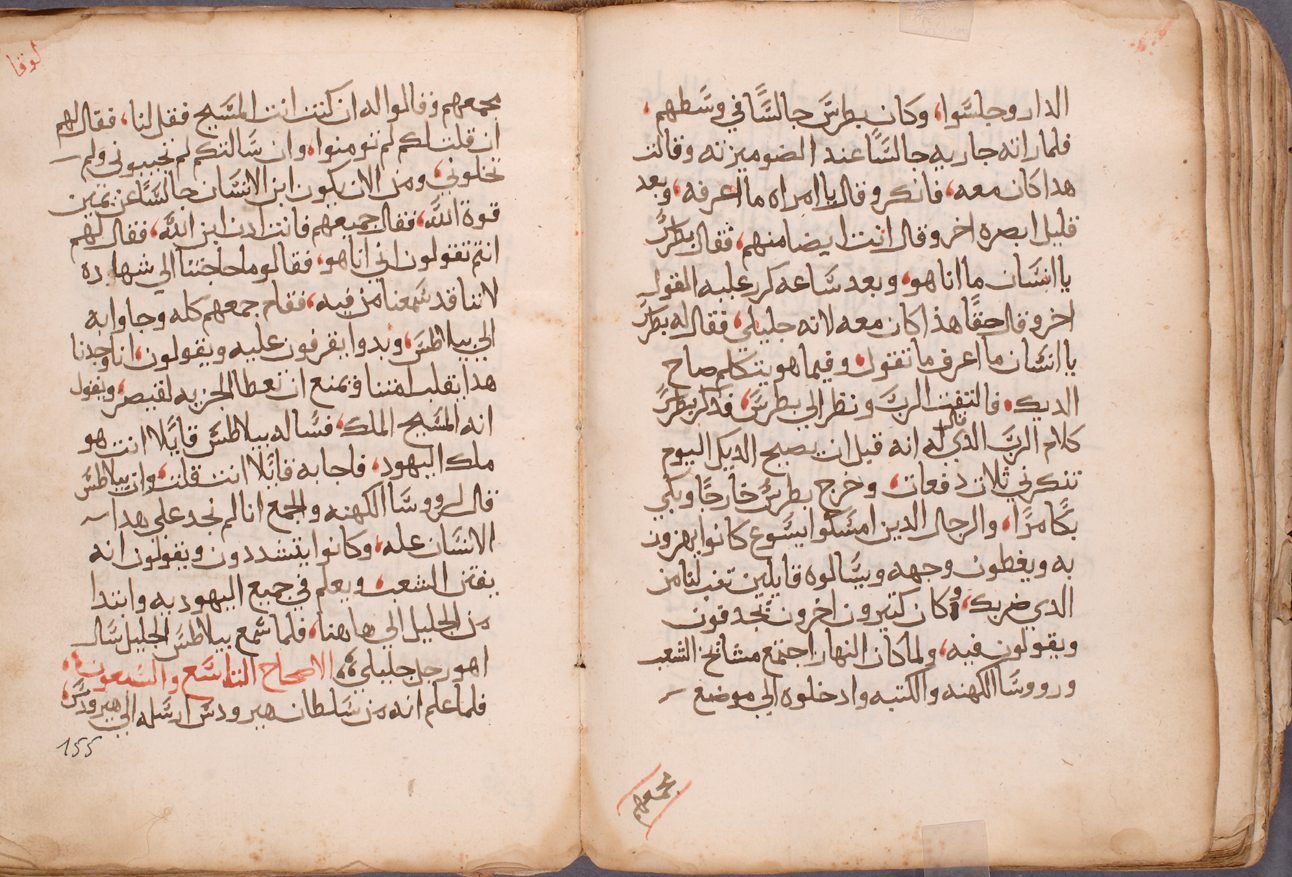 الدار وجلسوا، وكان بطرس جالسًا في وسطهم،
فلما راته جاريه جالسًا عند الضو ميزته وقالت
هدا كان معه، فانكر وقال يا امراه ما اعرفه، وبعد
قليل ابصره اخر وقال انت ايضا منهم، فقال بطرس
يا انسان ما انا هو، وبعد ساعه كرر عليه القول
اخر وقال حقًا هذا كان معه لانه جليلي، فقال له بطرس
يا انسان ما اعرف ما تقول، وفيما هو يتكلم صاح
الديك، فالتفت الرب ونظر الى بطرس، فدكر بطرس
كلام الرب الذي قال له انه قبل ان يصيح الديك اليوم
تنكرني ثلات دفعات، وخرج بطرس خارجًا وبكي
بكا مرًا، والرجال الدين امسكوا يسوع كانوا يهزون
به ويغطون وجهه ويسالوه قايلين تنب لنا من
الدي ضربك، وكان كتيرون اخرون يجدفون
ويقولون فيه، ولما كان النهار اجتمع مشائخ الشعب
وروسا الكهنه والكتبه وادخلوه الي موضع
مجمعهم
لوقا
مجمعهم وقالوا له ان كنت انت المسيح فقل لنا، فقال لهم
ان قلت لكم لم تومنوا، وان سالتكم لم تجيبوني ولم
تخلوني، ومن الان يكون ابن الانسان جالسًا عن يمين
قوة الله، فقال جميعهم فانت ادن ابن الله، فقال لهم
انتم تقولون اني انا هو، فقالوا ما حاجتنا الي شهاده
لاننا قد سمعنا من فيه، فقام جمعهم كله وجاوا به
الي بيلاطس، وبدوا يقرفون عليه ويقولون، انا وجدنا
هدا يقلب امتنا ويمنع ان تعطا الجزيه لقيصر، ويقول
انه المسيح الملك، فساله بيلاطس قايلا انت هو
ملك اليهود، فاجابه قايلا انت قلت، وان بيلاطس
قال لروسا الكهنه والجمع انا لم نجد على هدا
الانسان عله، وكانوا يتشددون ويقولون انه
يفتن الشعب، ويعلم في جميع اليهوديه وابتدا
من الجليل الي هاهنا، فلما سمع بيلاطس الجليل سال
اهو رجل جليلي، الاصحاح التاسع والسبعون
فلما علم انه من سلطان هيرودس ارسله الى هيرودس،
155